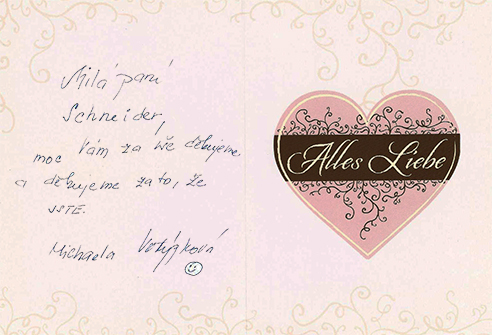 Milá paní
Schneider,
moc Vám za vše děkujeme
a děkujeme za to, že
JSTE.
Michaela
Alles Liebe